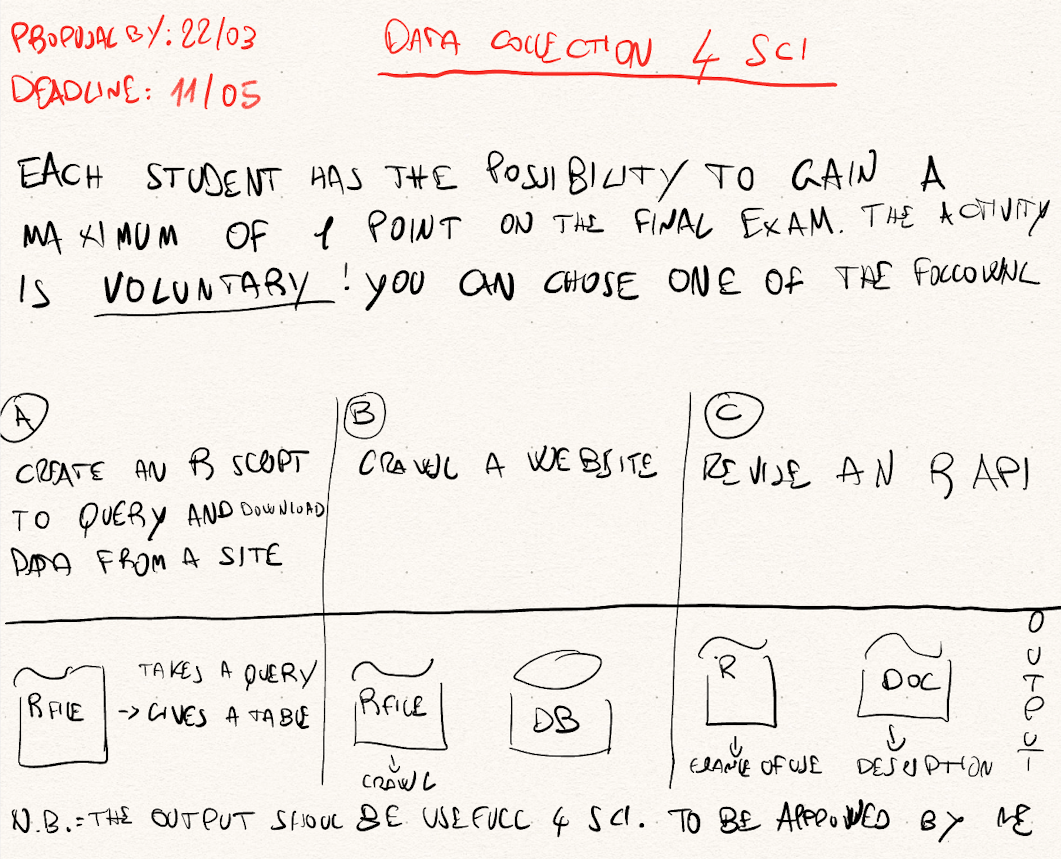 PROPOSAL BY: 22/03
DEADLINE: 11/05
DATA COLLECTION 4 SCI
EACH STUDENT HAS THE POSSIBILITY TO GAIN A
MAXIMUM OF 1 POINT ON THE FINAL EXAM. THE ACTIVITY
IS VOLUNTARY! YOU CAN CHOSE ONE OF THE FOLLOWING
A
CREATE AN R SCRIPT
TO QUERY AND DOWNLOAD
DATA FROM A SITE
B
CRAWL A WEBSITE
C
REVISE AN R API
R FILE
TAKES A QUERY
-> GIVES A TABLE
R FILE
CRAWL
DB
R
EXAMPLE OF USE
DOC
DESCRIPTION
OUTPUT
N.B.: THE OUTPUT SHOUL BE USEFULL 4 SCI. TO BE APPROVED BY ME